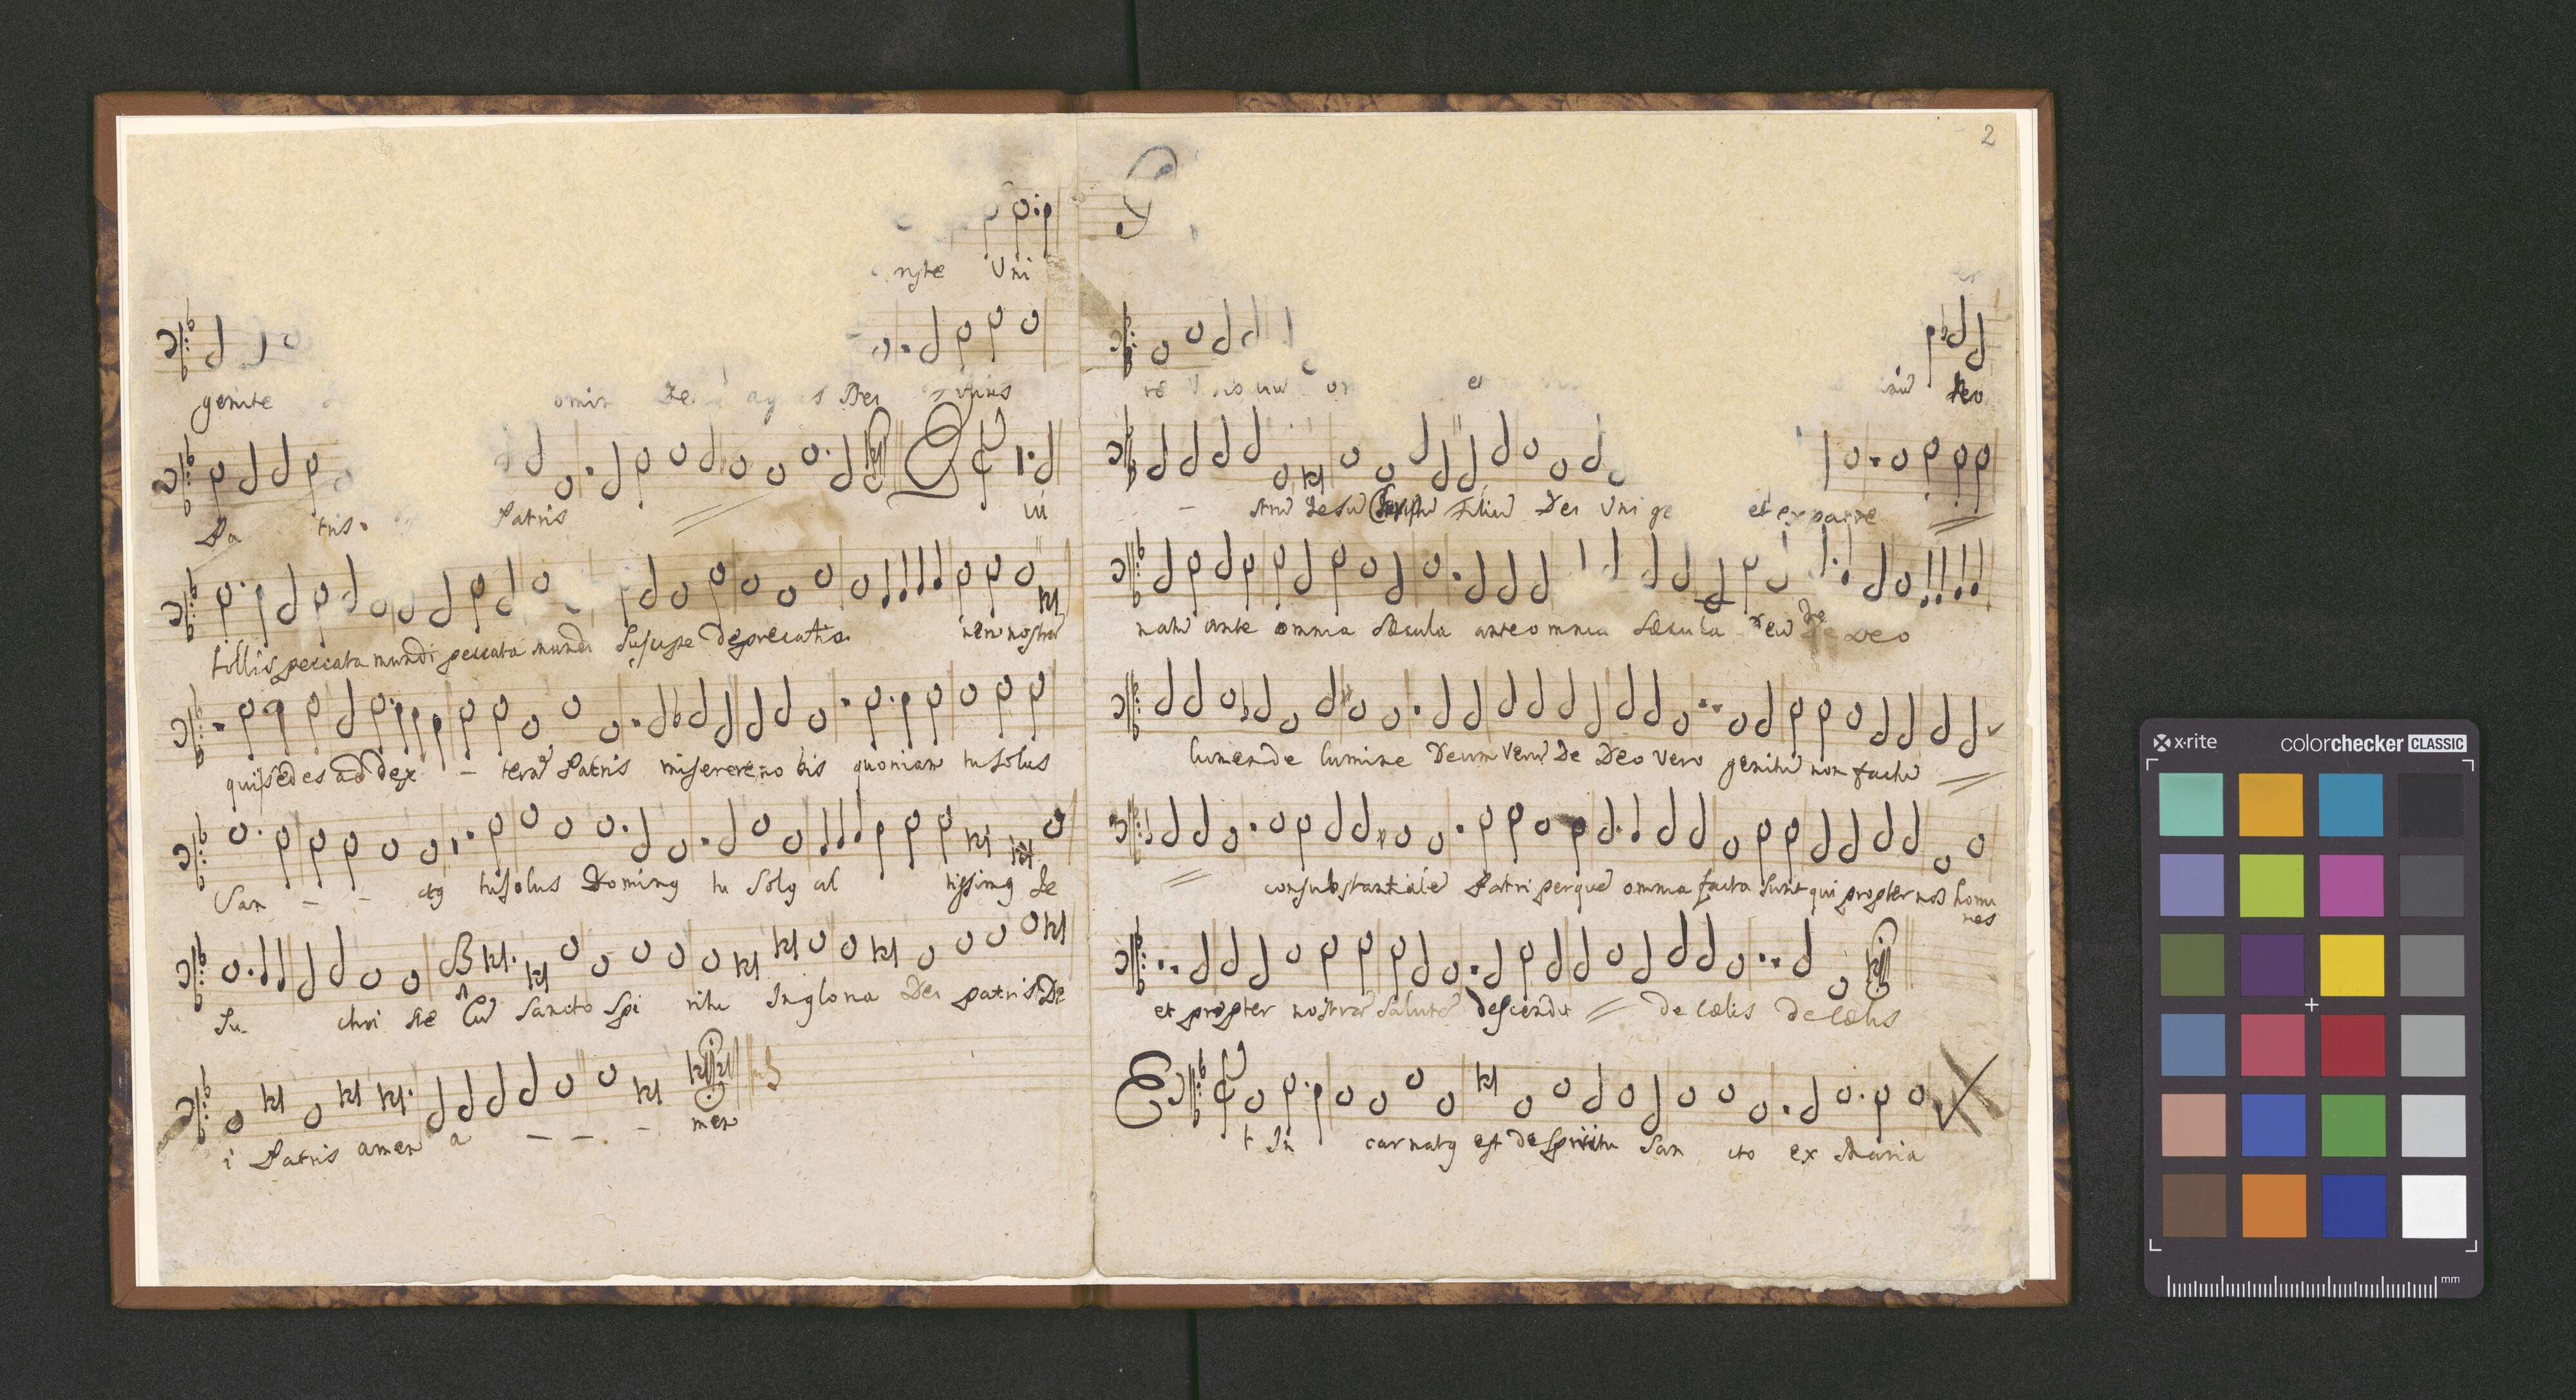 Uni
genite omin Dei
Pa tris. Patris
tollis peccata mundi peccata mundi Suscipe deprecatio nem nostrã
qui sedes ad dex - terã Patris miserere no bis quoniam tu solus
San - - ctq tu solus Dominq tu Solq al tissimq Je
Su chri ste Cũ Sancto Spi ritu In gloria Dei patris De
i Patris amen a - - - men
2
et Deo
- strũ Jesu Filiũ Dei Uni ge et ex patre
natũ ante omnia sæcula ante omnia sæcula Deũ de Deo
lumen de lumine Deum verũ de Deo vero genitũ non factũ
consubstantialẽ Patri per quẽ omnia facta sunt qui propter nos homi
nes
et propter nostrã salutẽ descendit de cœlis de cœlis
Et In carnatq est de Spiritu San cto ex Maria
x-rite colorchecker CLASSIC
mm